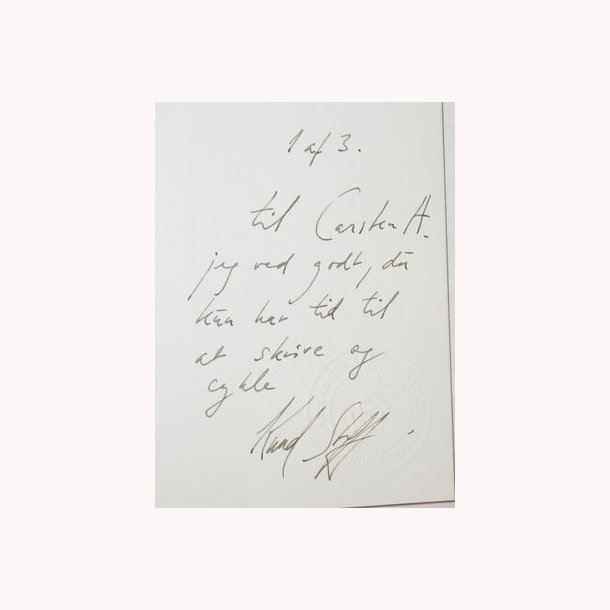 1 af 3.
til Carsten A.
jeg ved godt, du
kun har tid til
at skrive og
cykle
Knud